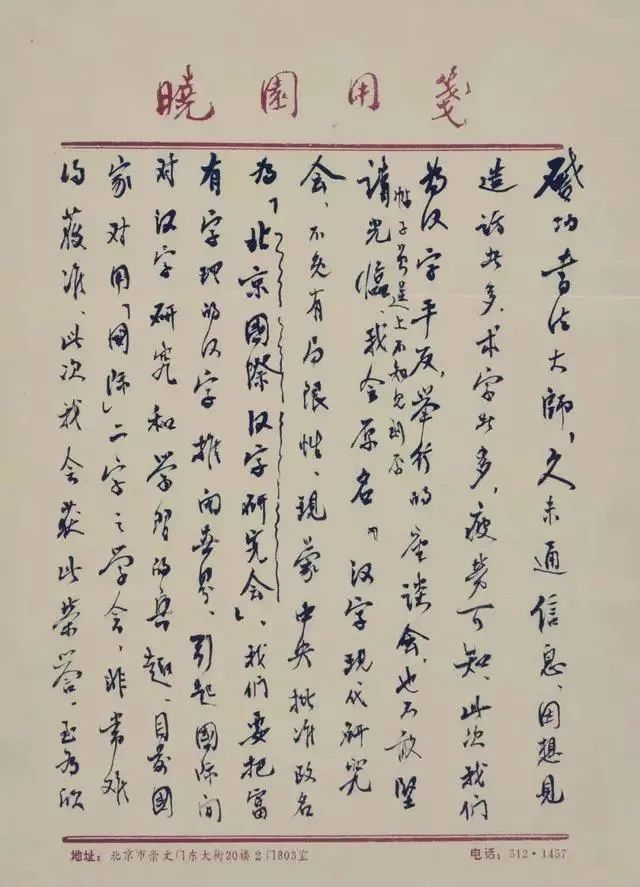 曉園用箋
啓功書法大師,久未通信息、因想見
造訪者多、求字者多,疲劳可知、此次我们
为汉字平反,举行的座谈会,也不敢坚
帖子曾送上不知见到否
請光临、我会原名「汉字现代研究
会、不免有局限性、現蒙中央批准改名
为「北京國際汉字研究会」、我们要把富
有字理的汉字推向世界、引起國际间
对汉字研究和学習的兴趣、目前國
家对用「國际」二字之学会,非常难
得获准、此次我会获此荣誉、至为欣
地址:北京市崇文门东大街20楼2门803室 电话:512·1457